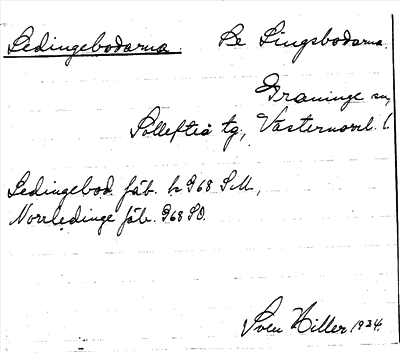 Ledingebodarna. Se Lingsbodarna.
Graninge sn,
Sollefteå tg, Västernorrl. l.
Ledingebod. fäb. h 968 S.M.,
Norrledinge fäb. 968 SO.
Sven Hiller 1934